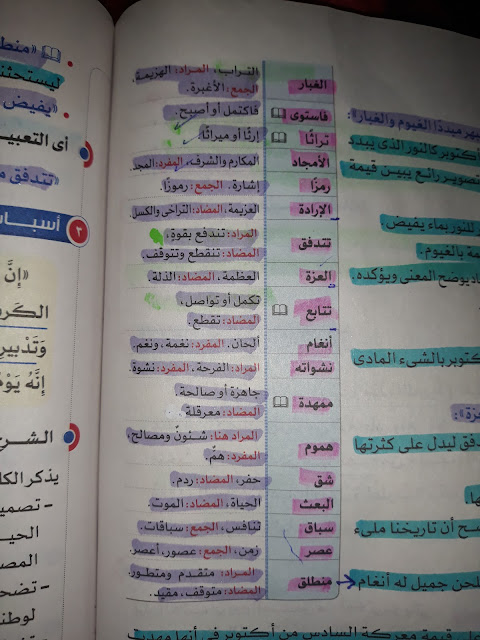 الغبار
التراب، المراد: الهزيمة.
الجمع: الأغبرة.
فاستوى
فاكتمل أو أصبح.
تراثًا
إرثًا أو ميراثًا.
الأمجاد
المكارم والشرف، المفرد: المجد.
رمزًا
إشارة. الجمع: رموزًا.
الإرادة
العزيمة، المضاد: التراخى والكسل
تتدفق
المراد: تندفع بقوة،
المضاد: تنقطع وتتوقف.
العزة
العظمة، المضاد: الذلة.
تتابع
تكمل أو تواصل،
المضاد: تقطع.
أنغام
ألحان. المفرد: نغمة، ونغم.
نشواته
المراد: الفرحة، المفرد: نشوة.
ممهدة
جاهزة أو صالحة.
المضاد: معرقلة.
هموم
المراد هنا: شئونٌ ومصالح،
المفرد: همٌّ.
شق
حفر، المضاد: ردم.
البعث
الحياة، المضاد: الموت.
سباق
تنافس، الجمع: سباقات.
عصر
زمن، الجمع: عصور، أعصر.
منطلق
المراد: متقدم ومتطور.
المضاد: متوقف، مقيد.
مبددًا الغيوم والغبار:
أكتوبر كالنور الذى يبدد
تصوير رائع يبين قيمة
للنور بماء يفيض.
بالغيوم.
يوضح المعنى ويؤكده.
أكتوبر بالشىء المادى
ليدل على كثرتها
أن تاريخنا ملىء
لحن جميل له أنغام
قيمة معركة السادس من أكتوبر فى أنها مهدت
ليستحثن
«يفيض
أى التعبيـ
«تتدفق م
٢
أسبا
«إنَّ
الكَر
وَتَدْبِير
إنَّهُ يَوْ
الشر
يذكر الكا
- تصمي
الحيـ
المص
- تضح
لوطن